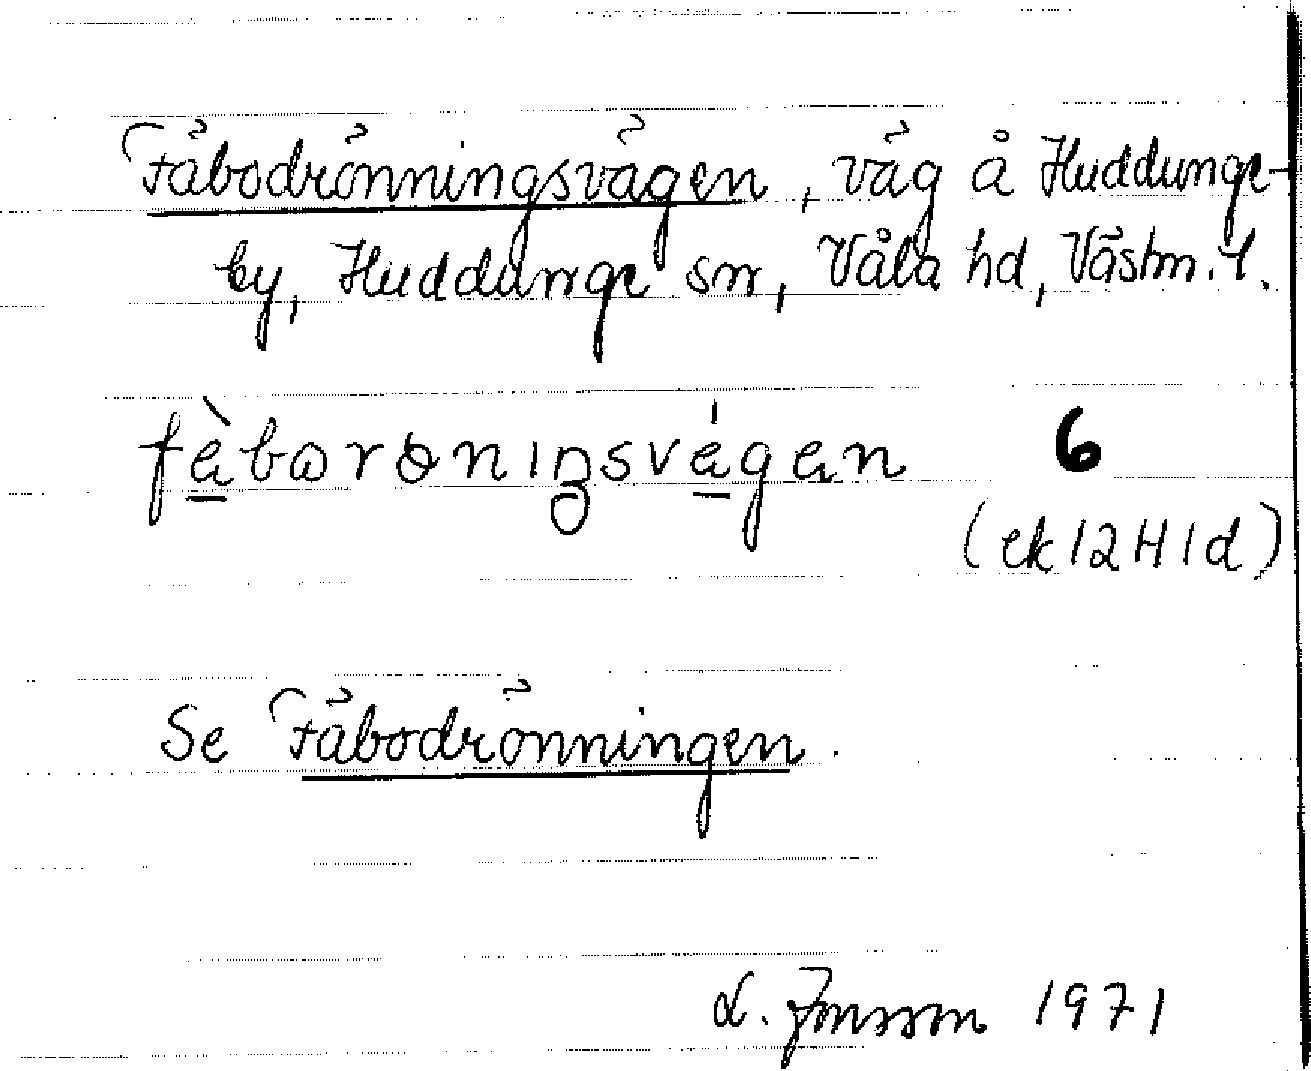 Fäbodrönningsvägen, väg å Huddunge-
by, Huddunge sn, Våla hd, Västm. l.
fèboroniŋsvégen 6
(ek 12H1d)
Se Fäbodrönningen.
L. Jonsson 1971